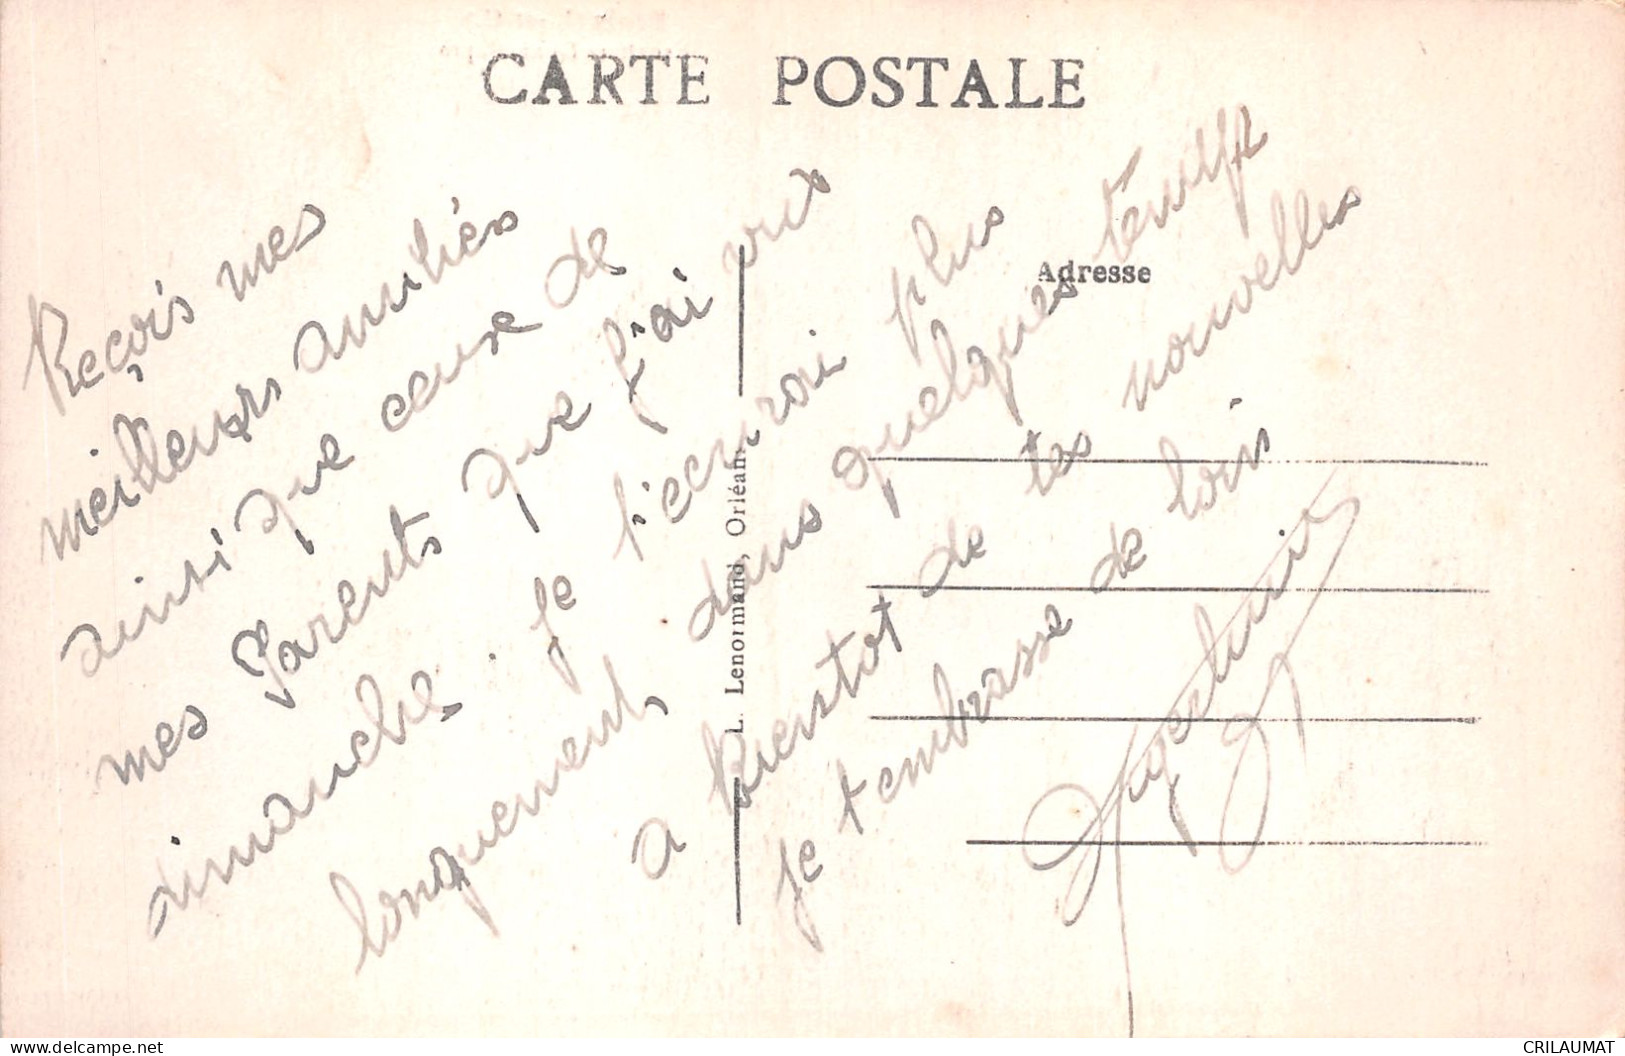 CARTE POSTALE
Adresse
L. Lenormand, Orléans
Reçois mes
meilleurs amitiés
ainsi que ceux de
mes Parents que j'ai vus
dimanche. je t'ecurai plus
longuement dans quelques temps
a bientot de tes nouvelles
je t'embrasse de loin
delcampe.net
CRILAUMAT